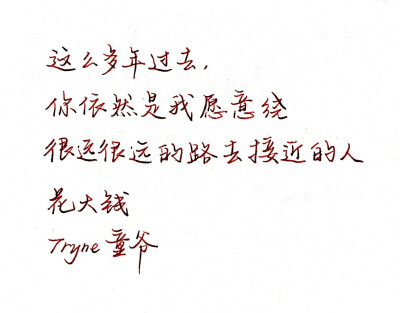 这么多年过去,
你依然是我愿意绕
很远很远的路去接近的人
花大钱
Tryne 童爷